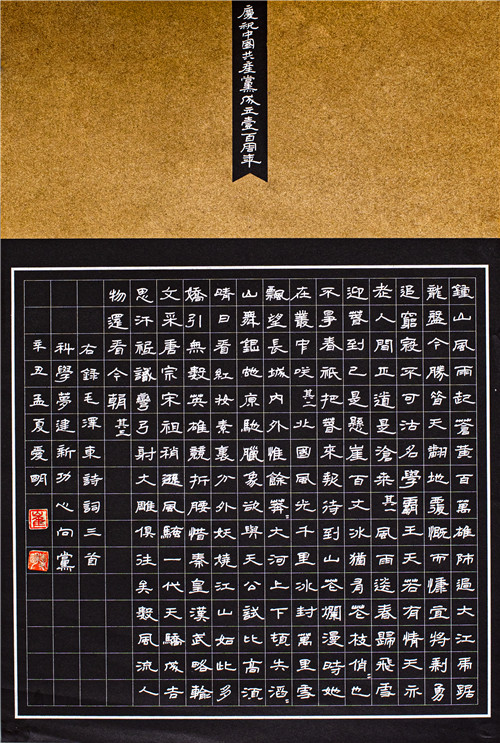 慶祝中國共産黨成立壹百周年
鍾山風雨起蒼黃百萬雄師過大江虎踞
龍盤今勝昔天翻地覆慨而慷宜將剩勇
追窮寇不可沽名學霸王天若有情天亦
老人間正道是滄桑其一風雨送春歸飛雪
迎春到已是懸崖百丈冰猶有花枝俏〻也
不爭春祇把春來報待到山花爛漫時她
在叢中咲其二北國風光千里冰封萬里雪
飄望長城內外惟餘莽〻大河上下頓失滔〻
山舞銀蛇原馳臘象欲與天公試比高須
晴日看紅妝素裹分外妖嬈江山如此多
嬌引無數英雄競折腰惜秦皇漢武略輸
文采唐宗宋祖稍遜風騷一代天驕成吉
思汗祇識彎弓射大雕俱往矣數風流人
物還看今朝其三
右錄毛澤東詩詞三首
科學夢建新功心向黨
辛丑孟夏愛明